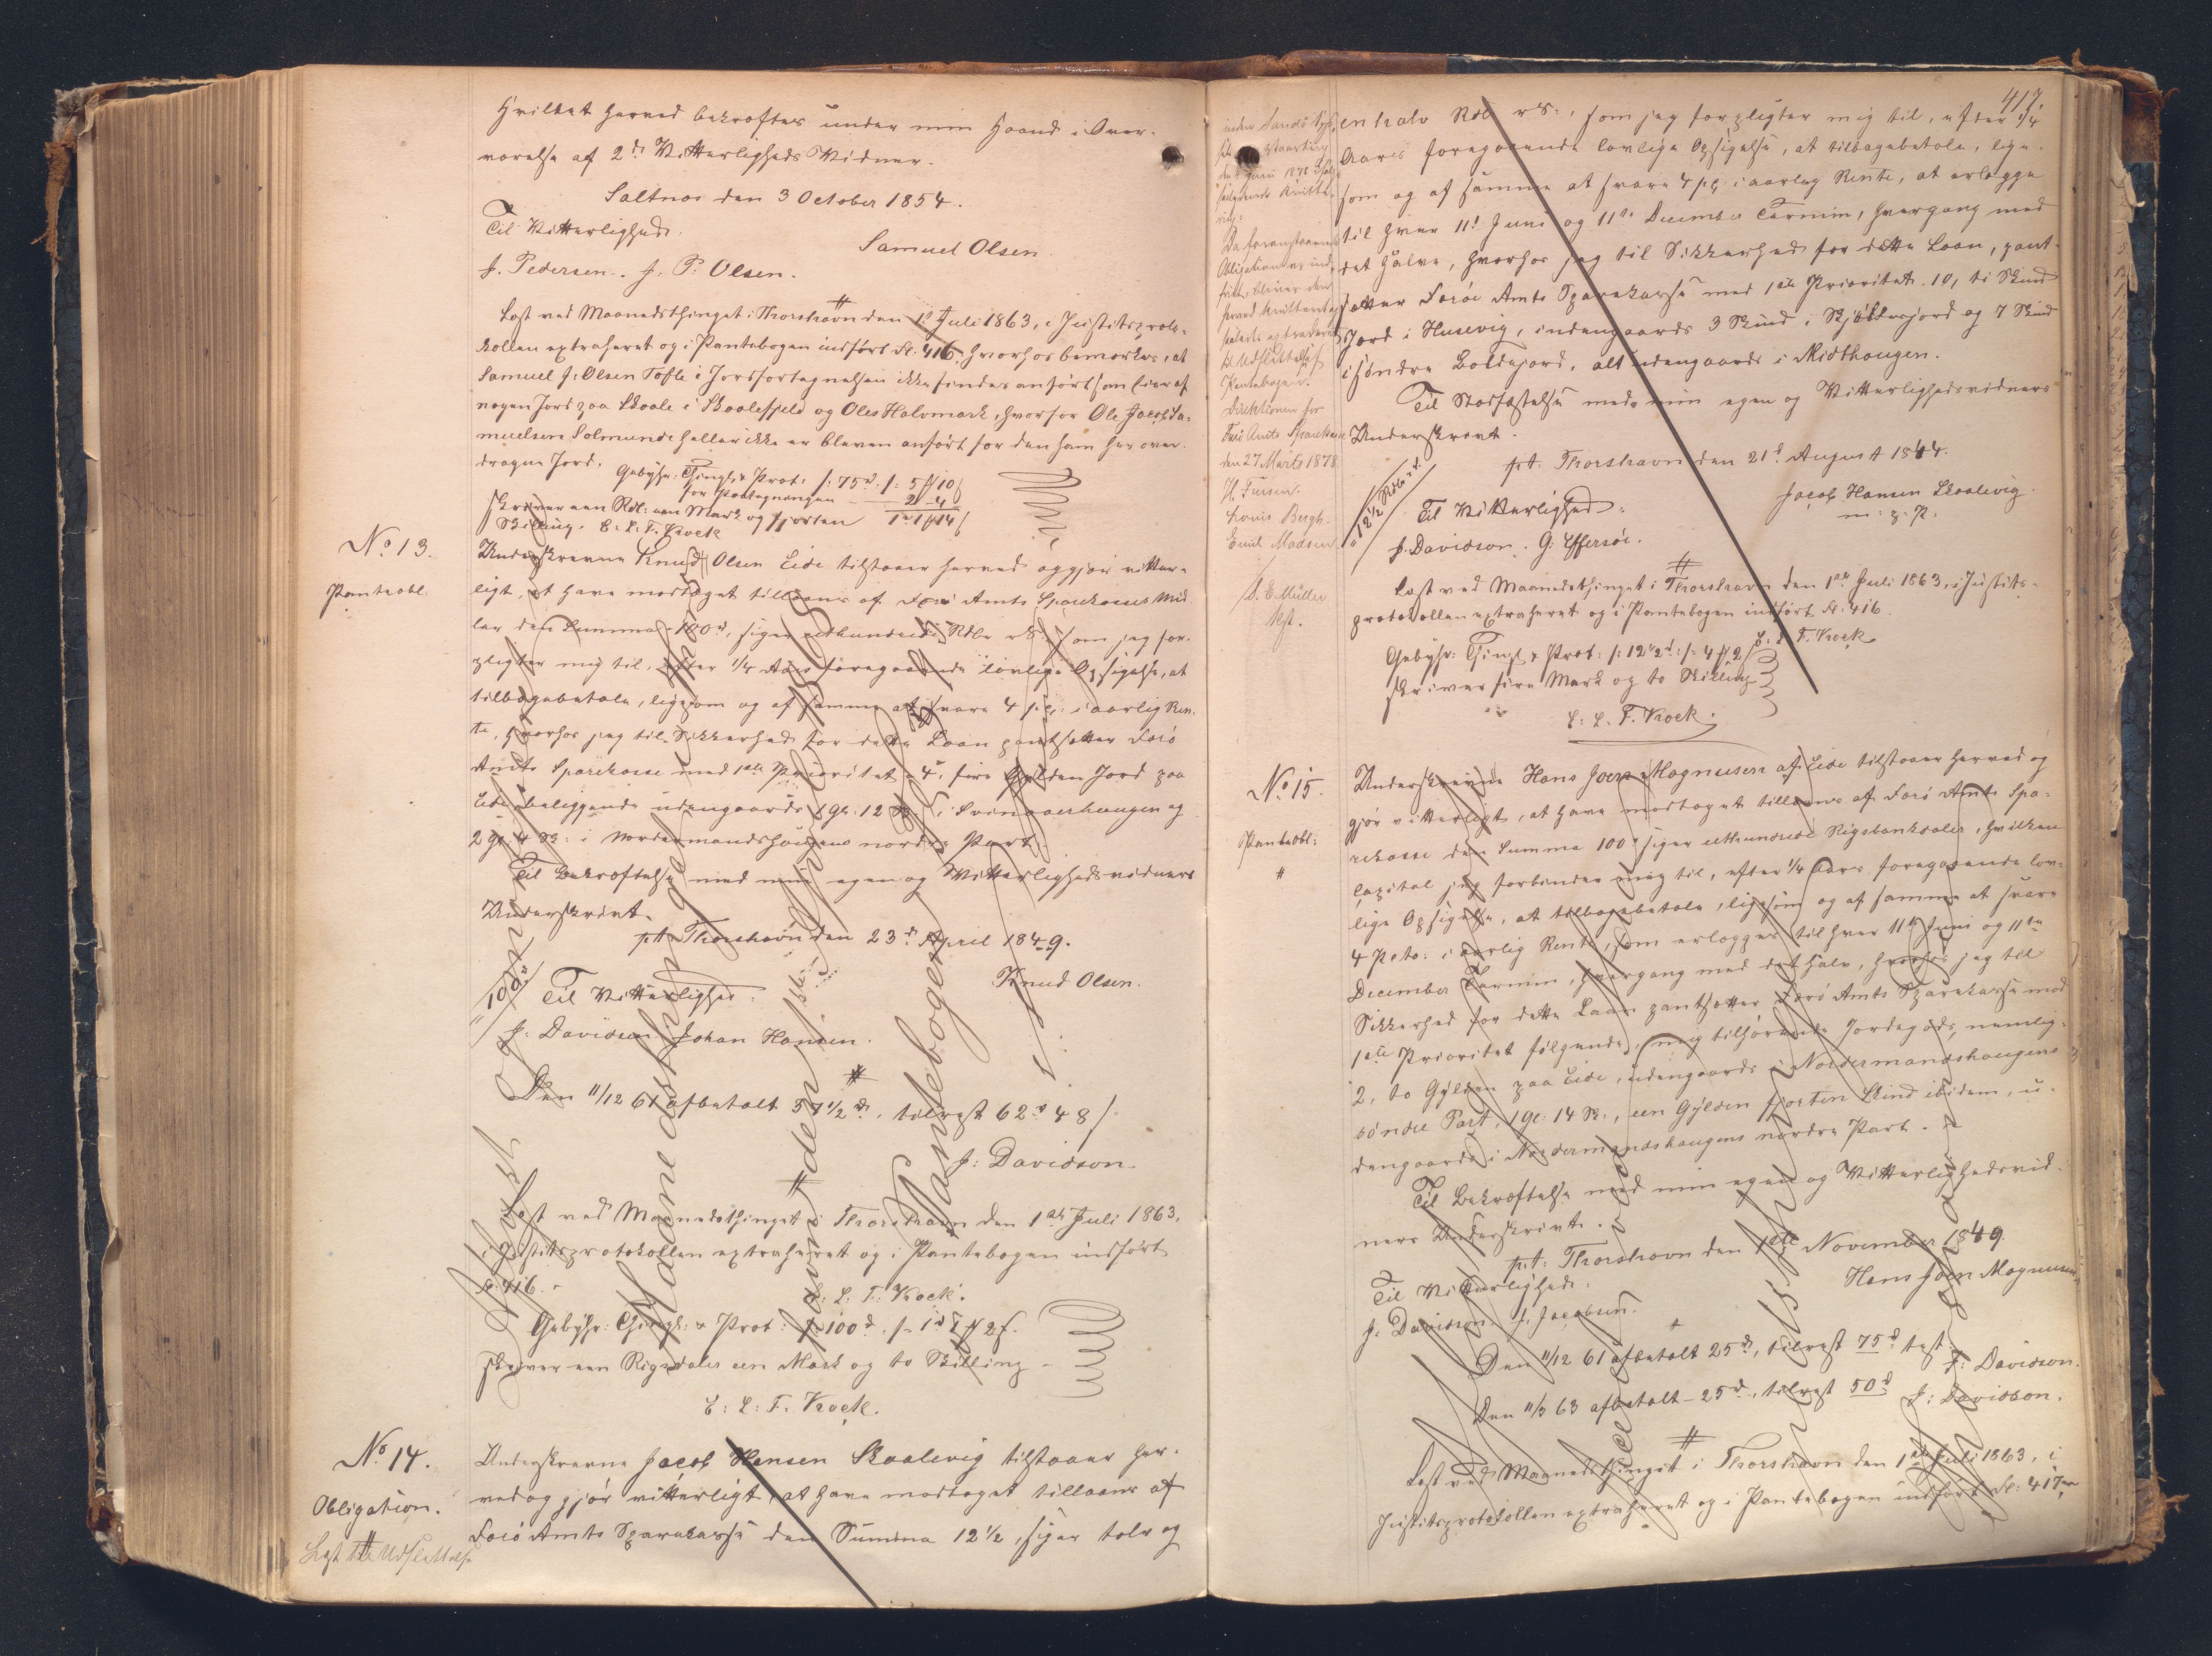 Hvilket herved bekræftes under min Haand i Over-
værelse af 2de Vitterligheds Vidner.
Saltnæs den 3 October 1854.
Til Vitterlighed:
Samuel Olsen.
J. Pedersen. J. P. Olsen.
Læst ved Maanedsthinget i Thorshavn den 1e Juli 1863, i Justitsproto-
kollen extraheret og i Pantebogen indført Fl: 416, hvorhos bemærkes, at
Samuel J. Olsen Tofte i Jordfortegnelsen ikke findes anført som Eier af
nogen Jord paa Skaale i Skaalefjeld og Oles Halvmark, hvorfor Ole Jacob Sa-
muelsen Solmunde heller ikke er bleven anført for den ham her over-
dragne Jord.
Gebyhr: Thingl. & Prot: /: 75d :/ = 5 # 10 s
for Paategningen 2 - 4
skriver een Rdl: een Mark og fjorten 1d 1 # 14 s
Skilling. E. L. T. Krock
No 13.
Panteobl.
Underskrevne Knud Olsen Eide tilstaaer herved og gjør vitter-
ligt, at have modtaget tillaans af Færø Amts Sparekasses Mid-
ler den Summa 100d, siger eethundrede Rdlr r S:, som jeg for-
pligter mig til, efter 1/4 Aars foregaaende lovlige Opsigelse, at
tilbagebetale, ligesom og af samme at svare 4 pCt. i aarlig Ren-
te, hvorhos jeg til Sikkerhed for dette Laan pantsætter Færø
Amts Sparekasse med 1ste Prioritet 4, fire Gylden Jord paa
Eide beliggende udengaards 1 gl. 12 Sk. i Svinaaerhaugen og
2 gl. 4 Sk: i Nordermandshaugens nordre Part.
Til Bekræftelse med min egen og Vitterlighedsvidners
Underskrivt.
pt. Thorshavn den 23d April 1849.
100d
Til Vitterlighed:
Knud Olsen.
J: Davidsen Johan Hansen.
Den 11/12 61 afbetalt 37 1/2 d, tilrest 62d 48 s
J: Davidson.
Læst ved Maanedsthinget i Thorshavn den 1ste Juli 1863,
i Justitsprotokollen extraheret og i Pantebogen indført
Fl: 416.
E: L: T: Krock.
Gebyhr: Thingl: & Prot: /: 100d :/ = 1d 1 # 2 s.
skriver een Rigsdaler een Mark og to Skilling -
E: L: T. Krock.
No 14.
Obligation.
Læst til Udslettelse
Underskrevne Jacob Hansen Skaalevig tilstaaer her-
ved og gjør vitterligt, at have modtaget tillaans af
Færø Amts Sparekasse den Summa 12 1/2, siger tolv og
417.
den 27 Marts 1878
H. Finsen.
Louis Bergh.
Emil Madsen
S. E. Müller
Kst.
en halv Rdl r S:, som jeg forpligter mig til, efter 1/4
Aars foregaaende lovlige Opsigelse, at tilbagebetale, lige-
som og af samme at svare 4 pCt. i aarlig Rente, at erlægge
til hver 11te Juni og 11te December Termin, hvergang med
det halve, hvorhos jeg til Sikkerhed for dette Laan, pant-
sætter Færøe Amts Sparekasse med 1ste Prioritet 10, ti Skind
Jord i Husevig, indengaards 3 Skind i Skjældresjord og 7 Skind
i søndre Boldejord, alt udengaards i Midthaugen.
Til Stadfæstelse med min egen og Vitterlighedsvidners
Underskrivt.
pt. Thorshavn den 21d August 1844.
12 1/2 Rdlr
Til Vitterlighed:
Jacob Hansen Skaalevig
m: p: P.
J. Davidson. G. Effersøe.
Læst ved Maanedsthinget i Thorshavn den 1ste Juli 1863, i Justits-
protokollen extraheret og i Pantebogen indført Fl: 416.
E. L. T. Krock
Gebyhr: Thingl & Prot: /: 12 1/2 d :/ = 4 # 2 s
skriver fire Mark og to Skilling
E: L. T. Krock.
No 15.
Pantoobl:
Underskrevne Hans Joen Magnusen af Eide tilstaaer herved og
gjør vitterligt, at have modtaget tillaans af Færø Amts Spa-
rekasse den Summa 100d siger eethundrede Rigsbankdaler, hvilken
Capital jeg forbinder mig til, efter 1/4 Aars foregaaende lov-
lige Opsigelse, at tilbagebetale, ligesom og af samme at svare
4 pcto: i aarlig Rente, som erlægges til hver 11te Juni og 11te
December Termin, hvergang med det halve, hvorhos jeg til
Sikkerhed for dette Laan pantsætter Færø Amts Sparekasse med
1ste Prioritet følgende, mig tilhørende Jordegods, nemlig:
2, to Gylden paa Eide, udengaards i Nordermandshaugens
søndre Part, 1 gl: 14 Sk:, een Gylden fjorten Skind ibidem, u-
dengaards i Nordermandshaugens nordre Part.
Til Bekræftelse med min egen og Vitterlighedsvid-
ners Underskrivt.
pt: Thorshavn den 1ste November 1849.
Til Vitterlighed:
Hans Joen Magnusen
J: Davidson. J. Jacobsen.
Den 11/12 61 afbetalt 25d, tilrest 75d test.
J: Davidson.
Den 11/3 63 afbetalt 25d, tilrest 50d
J: Davidson.
Læst ved Maanedsthinget i Thorshavn den 1ste Juli 1863, i
Justitsprotokollen extraheret og i Pantebogen indført Fl: 417